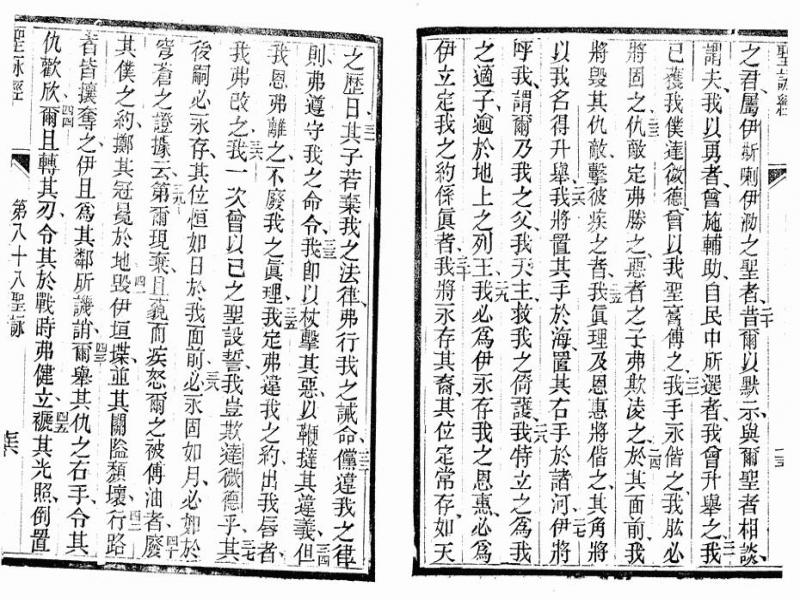 聖詠經
之君、屬伊斯喇伊泐之聖者、二十昔爾以默示、與爾聖者相談、
謂夫、我以勇者、曾施輔助、自民中所選者、我曾升舉之、二一我
已獲我僕達微德、曾以我聖膏傅之、二二我手永偕之、我肱必
將固之、二三仇敵定弗勝之、惡者之子弗欺凌之、二四於其面前、我
將毀其仇敵、擊彼疾之者、二五我眞理及恩惠將偕之、其角將
以我名得升舉、二六我將置其手於海、置其右手於諸河、二七伊將
呼我、謂爾乃我之父、我天主、救我之倚護、二八我特立之爲我
之適子、逾於地上之列王、二九我必爲伊永存我之恩惠、必爲
伊立定我之約、係眞者、三十我將永存其裔、其位定常存、如天
之歷日、三一其子若棄我之法律、弗行我之誡命、三二儻違我之律
則、弗遵守我之命令、三三我卽以杖擊其惡、以鞭撻其違義、三四但
我恩弗離之、不廢我之眞理、三五我定弗違我之約、出我唇者、
我弗改之、三六我一次曾以己之聖設誓、我豈欺達微德乎、三七其
後嗣必永存、其位恒如日於我面前、三八必永固如月、必如於
穹蒼之證據云、三九第爾現棄且藐而疾怒爾之被傅油者、四十廢
其僕之約、擲其冠冕於地、四一毀伊垣堞、並其關隘頹壞、四二行路
者皆攘奪之、伊且爲其鄰所譏誚、四三爾舉其仇之右手、令其
仇歡欣、四四爾且轉其刃、令其於戰時弗健立、四五褫其光照、倒置
聖詠經
第八十八聖詠